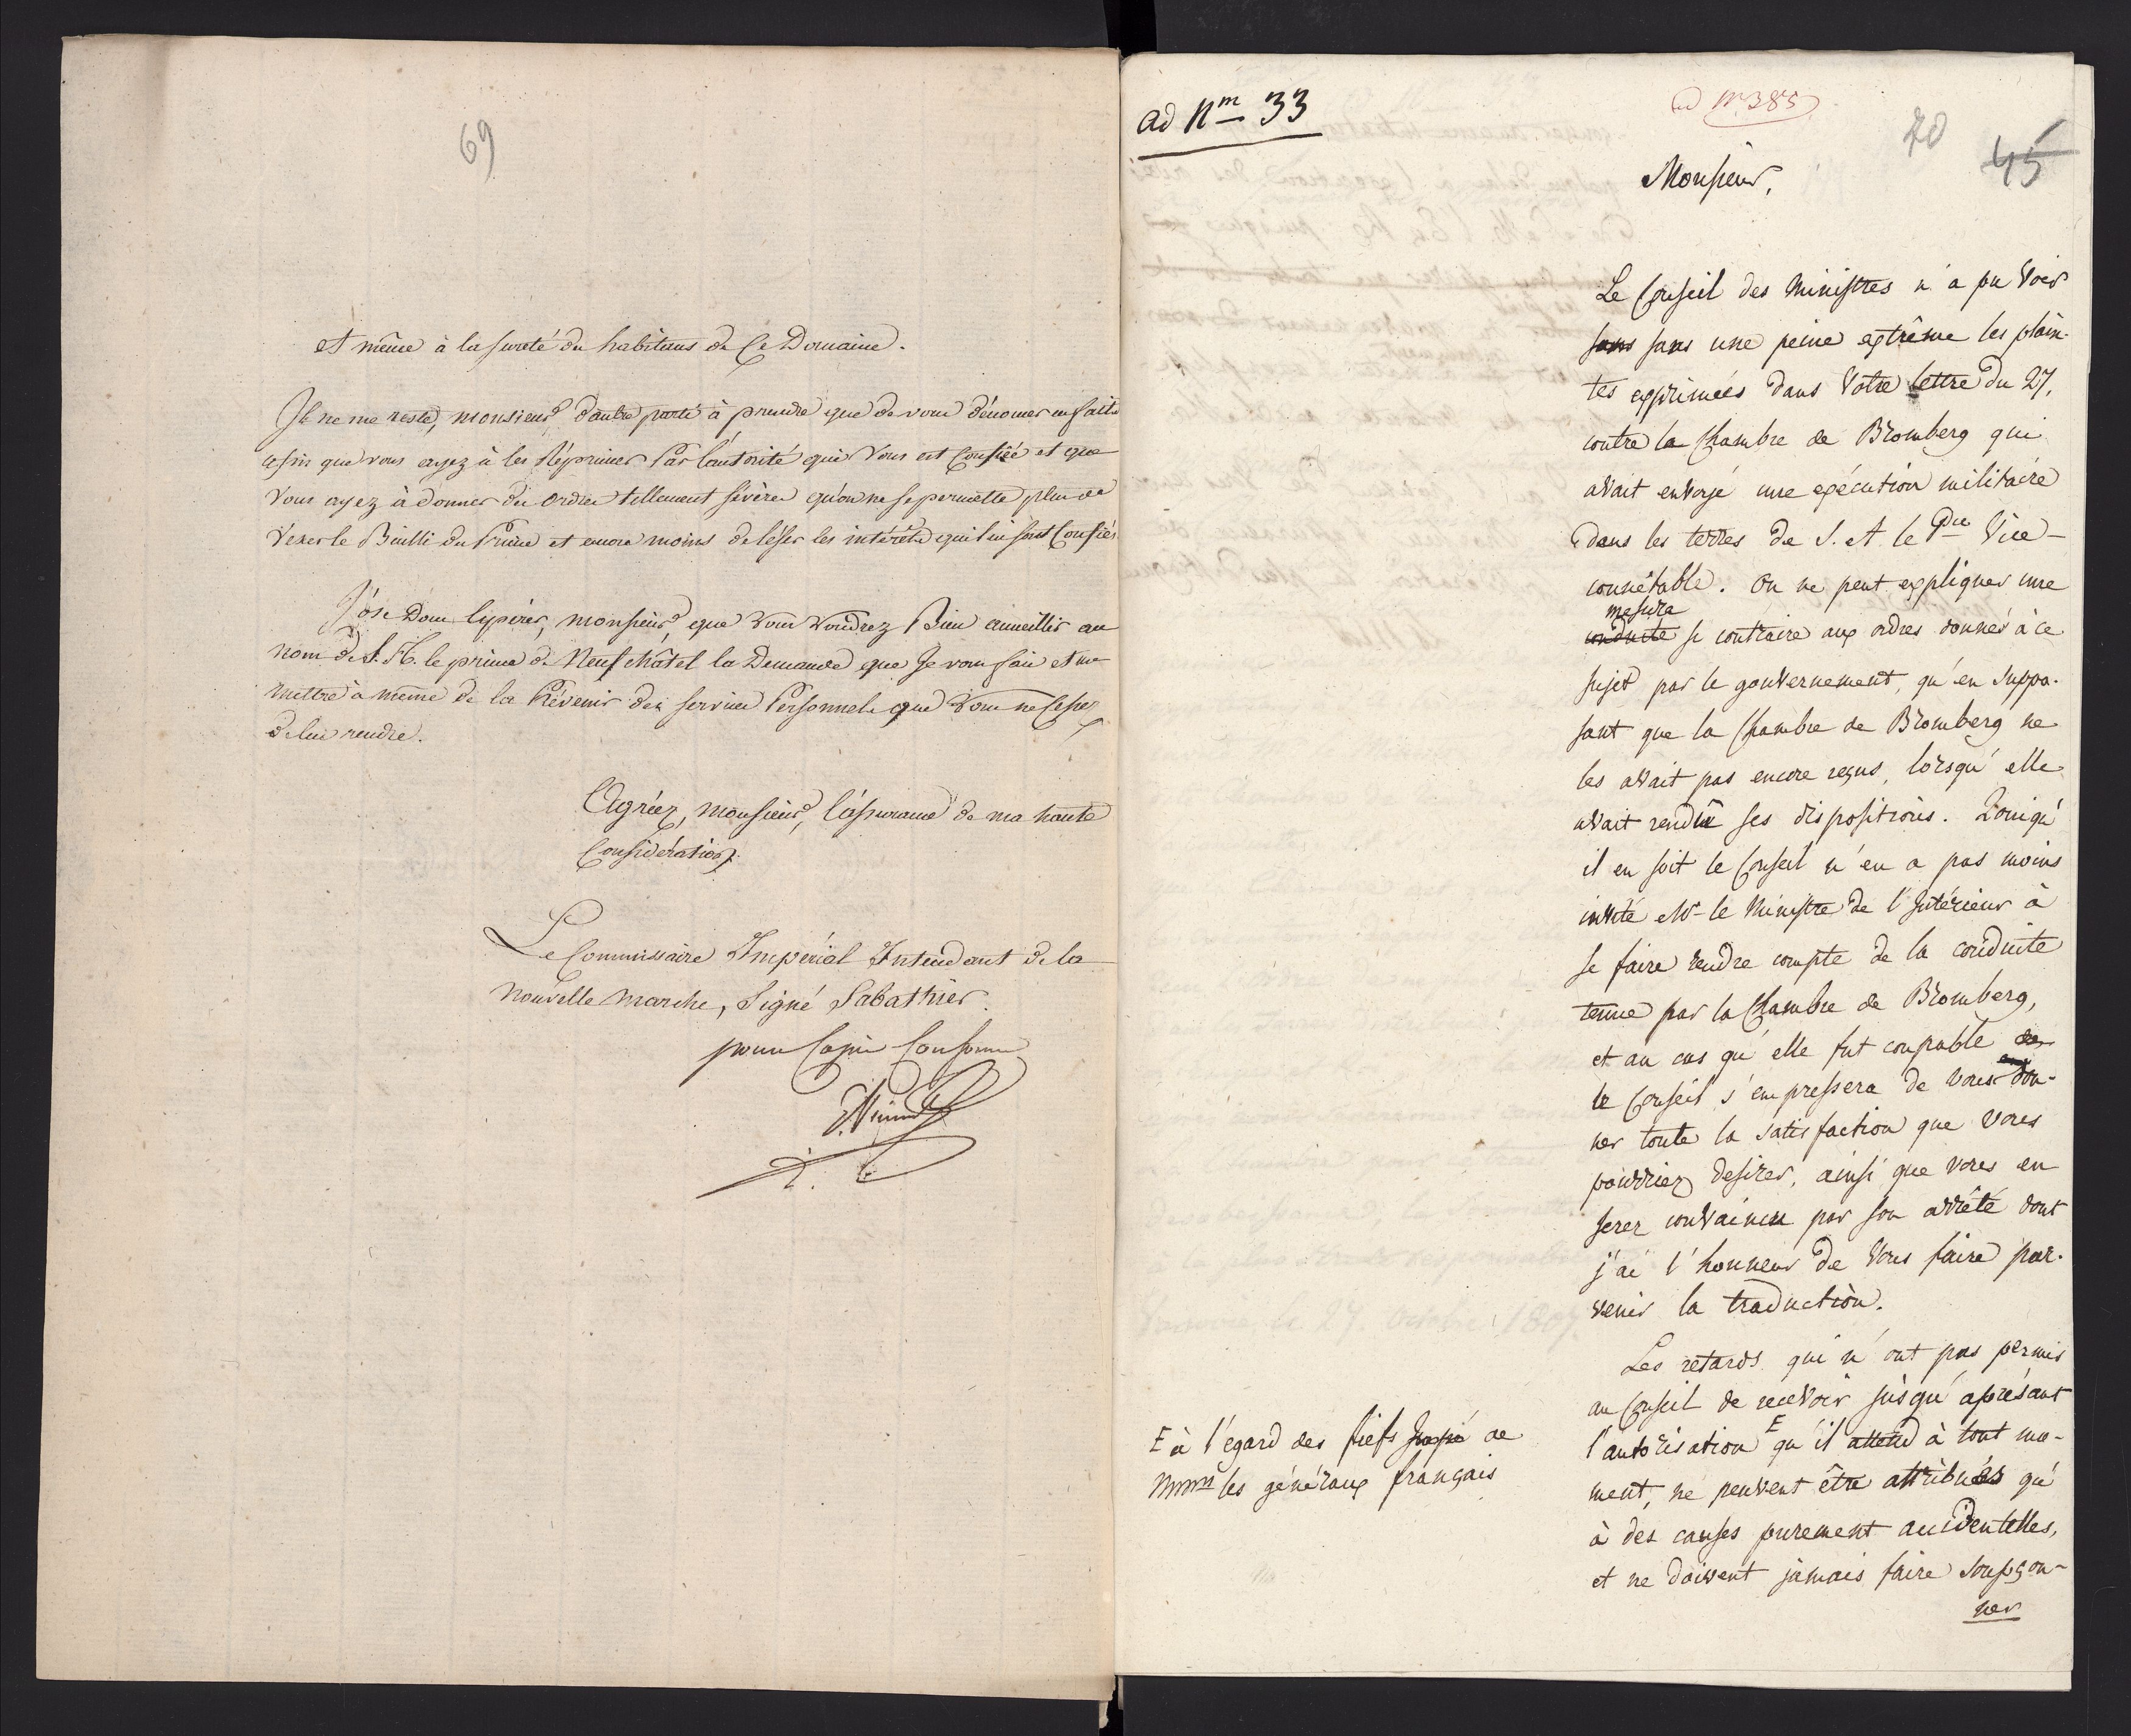 69
et même à la sureté des habitans de ce Domaine.
Il ne me reste, monsieur, d'autre parti à prendre que de vous dénoncer ces faits
afin que vous ayez à les Réprimer Par l'autorité qui Vous est Confiée et que
Vous ayez à donner des ordres tellement sévères qu'on ne se permette plus de
Vexer le Bailli du Prince et encore moins de léser les intérêts qui lui sont Confiés
J'ose Donc espérer, monsieur, que vous voudrez Bien accueillir au
nom de S. A. le prince de Neufchâtel la Demande que Je vous fais et me
mettre à même de la Prévenir des services Personnels que vous ne cessez
de lui rendre.
Agréez, monsieur, l'assurance de ma haute
Considération.
Le Commissaire Impérial Intendant de la
nouvelle marche, Signé Sabathier.
pour Copie Conforme
ad Nm 33
ad Nr 385
70
45
Monsieur,
Le Conseil des Ministres n'a pu voir
sans sans une peine extrême les plain-
tes exprimées dans Votre lettre du 27,
contre la Chambre de Bromberg qui
avait envoyé une exécution militaire
dans les terres de S. A. le Pce Vice-
connétable. On ne peut expliquer une
mesure
conduite si contraire aux ordres donnés à ce
sujet par le gouvernement, qu'en suppo-
sant que la Chambre de Bromberg ne
les avait pas encore reçus, lorsqu'elle
avait rendu ses dispositions. Quoiqu'
il en soit le Conseil n'en a pas moins
invité Mr le Ministre de l'Intérieur à
se faire rendre compte de la conduite
tenue par la Chambre de Bromberg,
et au cas qu'elle fut coupable
le Conseil s'empressera de vous don-
ner toute la satisfaction que vous
pourriez desirer, ainsi que vous en
serez convaincu par son arrêté dont
j'ai l'honneur de Vous faire par-
venir la traduction.
Les retards qui n'ont pas permis
au Conseil de recevoir jusqu'aprésent
l'autorisation qu'il attend à tout mo-
ment, ne peuvent être attribués qu'
à des causes purement accidentelles,
et ne doivent jamais faire soupçon-
ner
à l'égard des fiefs de
Mmrs les généraux français